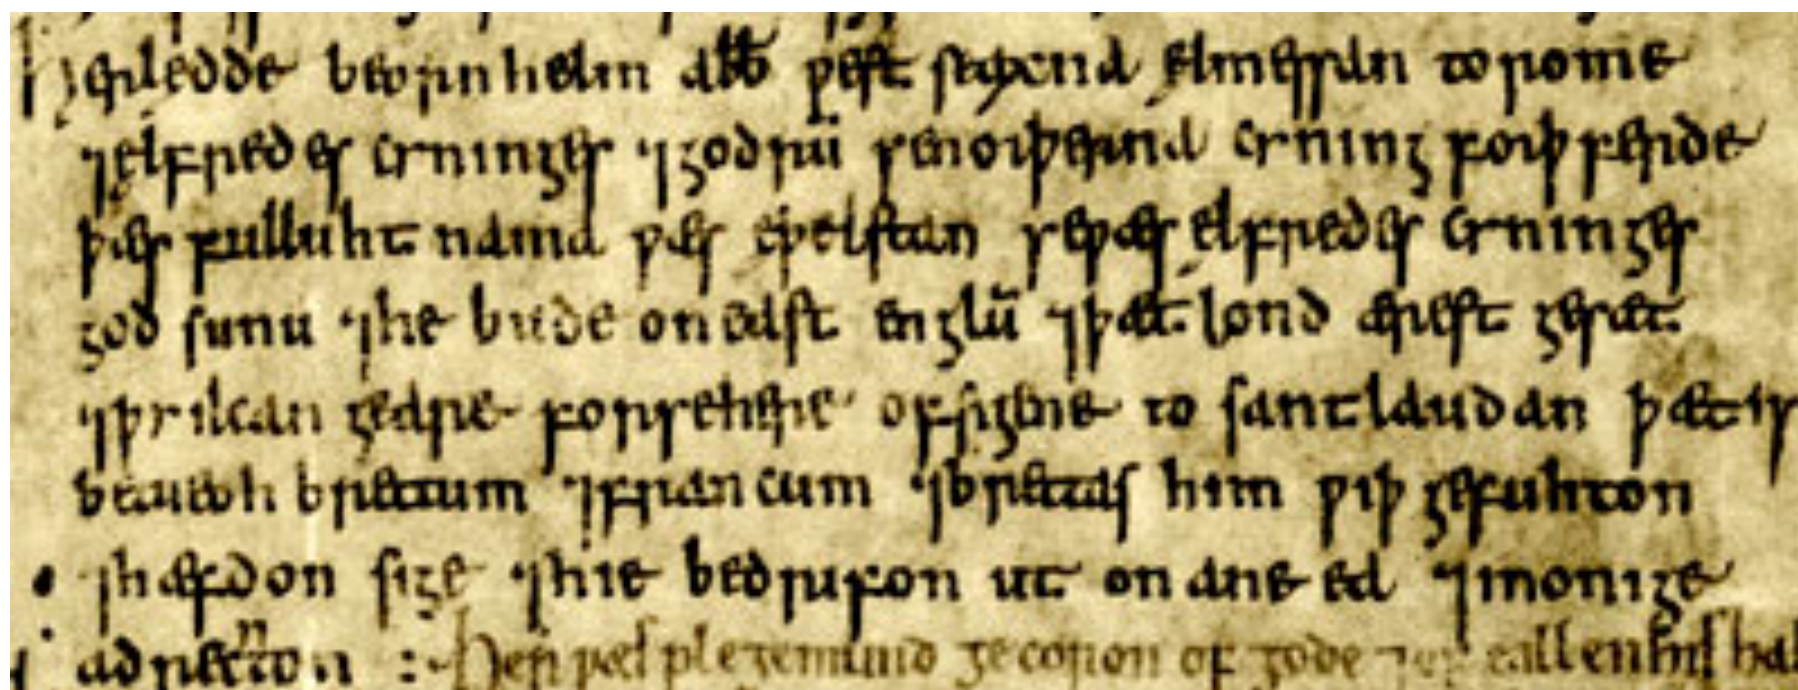 Her lędde beorn helm abb̃ west seaxna ęlmessan to rome
⁊ ęlfredes cyninges ⁊ godrū se norþerna cyning forþ ferde
þæs fulluht nama wæs ęþelstan se wæs ęlfredes cyninges
god sunu ⁊ he bude on east englū ⁊ þæt lond ærest gesæt
⁊ þy ilcan geare for se here of sigene to sant laudan þæt is
betweoh brettum ⁊ francum ⁊ brettas him wiþ gefuhton
⁊ hæfdon sige ⁊ hie bedrifon ut on ane ea ⁊ monige
adrencton :~ Her wæs plegemund gecoron of gode ⁊ eallen his hal